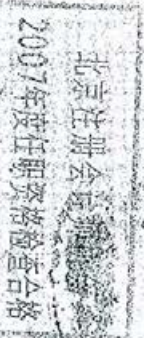 北京注册会
2007年度任职资格检查合格